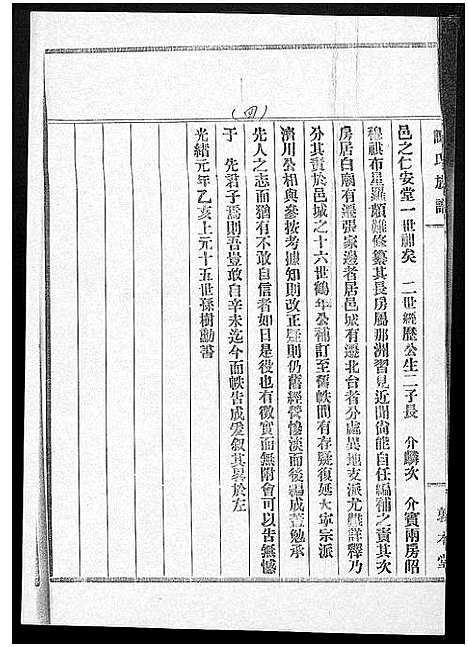 陳氏族譜
敦本堂
邑之仁安堂一世祖矣　二世經歷公生二子長　介麟次　介賓兩房昭
穆祺布星羅頗難修纂其長房鳳那洲習見近聞尚能自任編補之責其次
房居白廟有遷張家邊者居邑城有遷北台者分處異地支派尤難詳釋乃
分其責於邑城之十六世鶴年公補訂至舊帙間有存疑復延大宗宗派
濱川公相與參按考據知則改正疑則仍舊經營慘淡而後編成蓋勉承
先人之志而猶有不敢自信者如日是役也有徵實而無附會可以告無憾
于　先君子焉則吾豈敢自辛未迄今而帙告成爰敘其畧於左
光緒元年乙亥上元十五世孫樹勳書
(四)